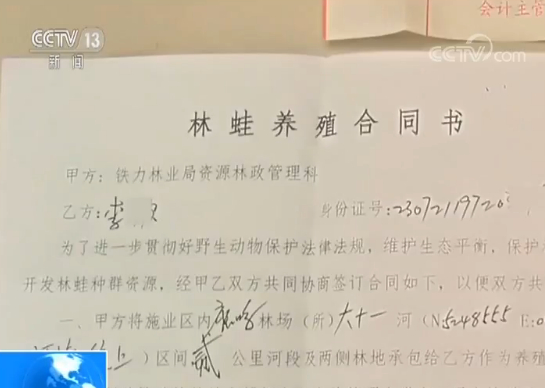 会计主管
CCTV 13
新闻
CCTV.com
林蛙养殖合同书
甲方：铁力林业局资源林政管理科
乙方：李
身份证号：2307211972
为了进一步贯彻好野生动物保护法律法规，维护生态平衡，保护
开发林蛙种群资源，经甲乙双方共同协商签订合同如下，以便双方共
一、甲方将施业区内 林场（所）大十一 河（N5248555 E:0
）区间 贰 公里河段及两侧林地承包给乙方作为养殖